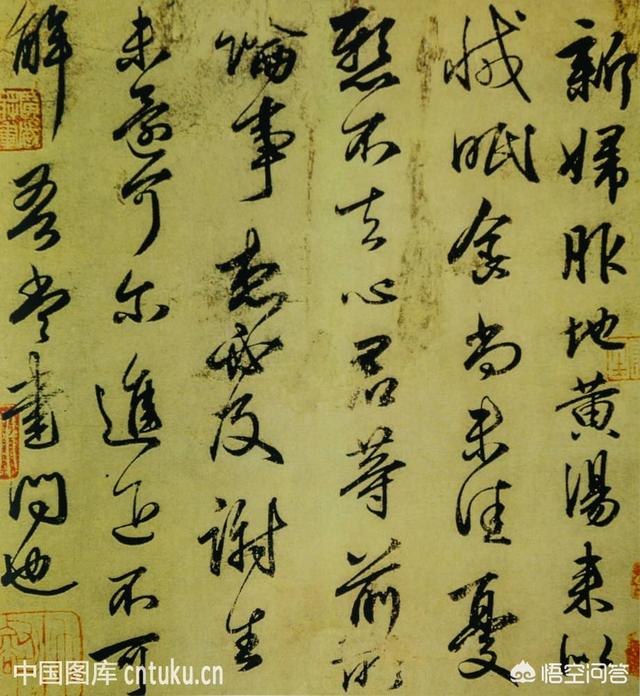 新婦服地黄湯来似
減眠食尚未佳憂
懸不去心君等前所
論事想必及謝生
未還可尔進退不可
解吾當書問也
中国图库 cntuku.cn
悟空问答